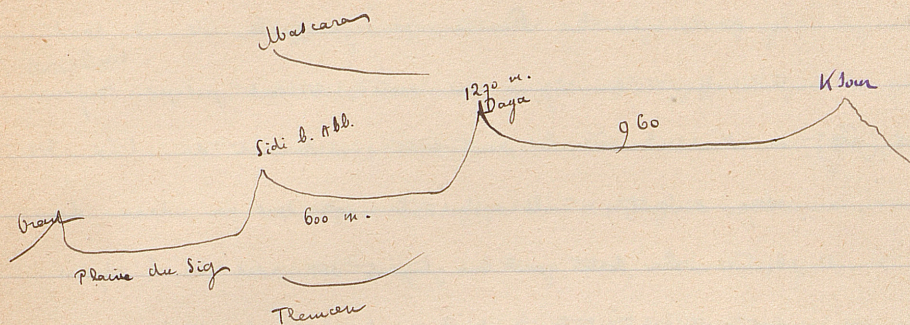 Mascara
1270 m.
Daya
Ksour
Sidi b. Abb.
960
Oran
600 m.
Plaine du Sig
Tlemcen